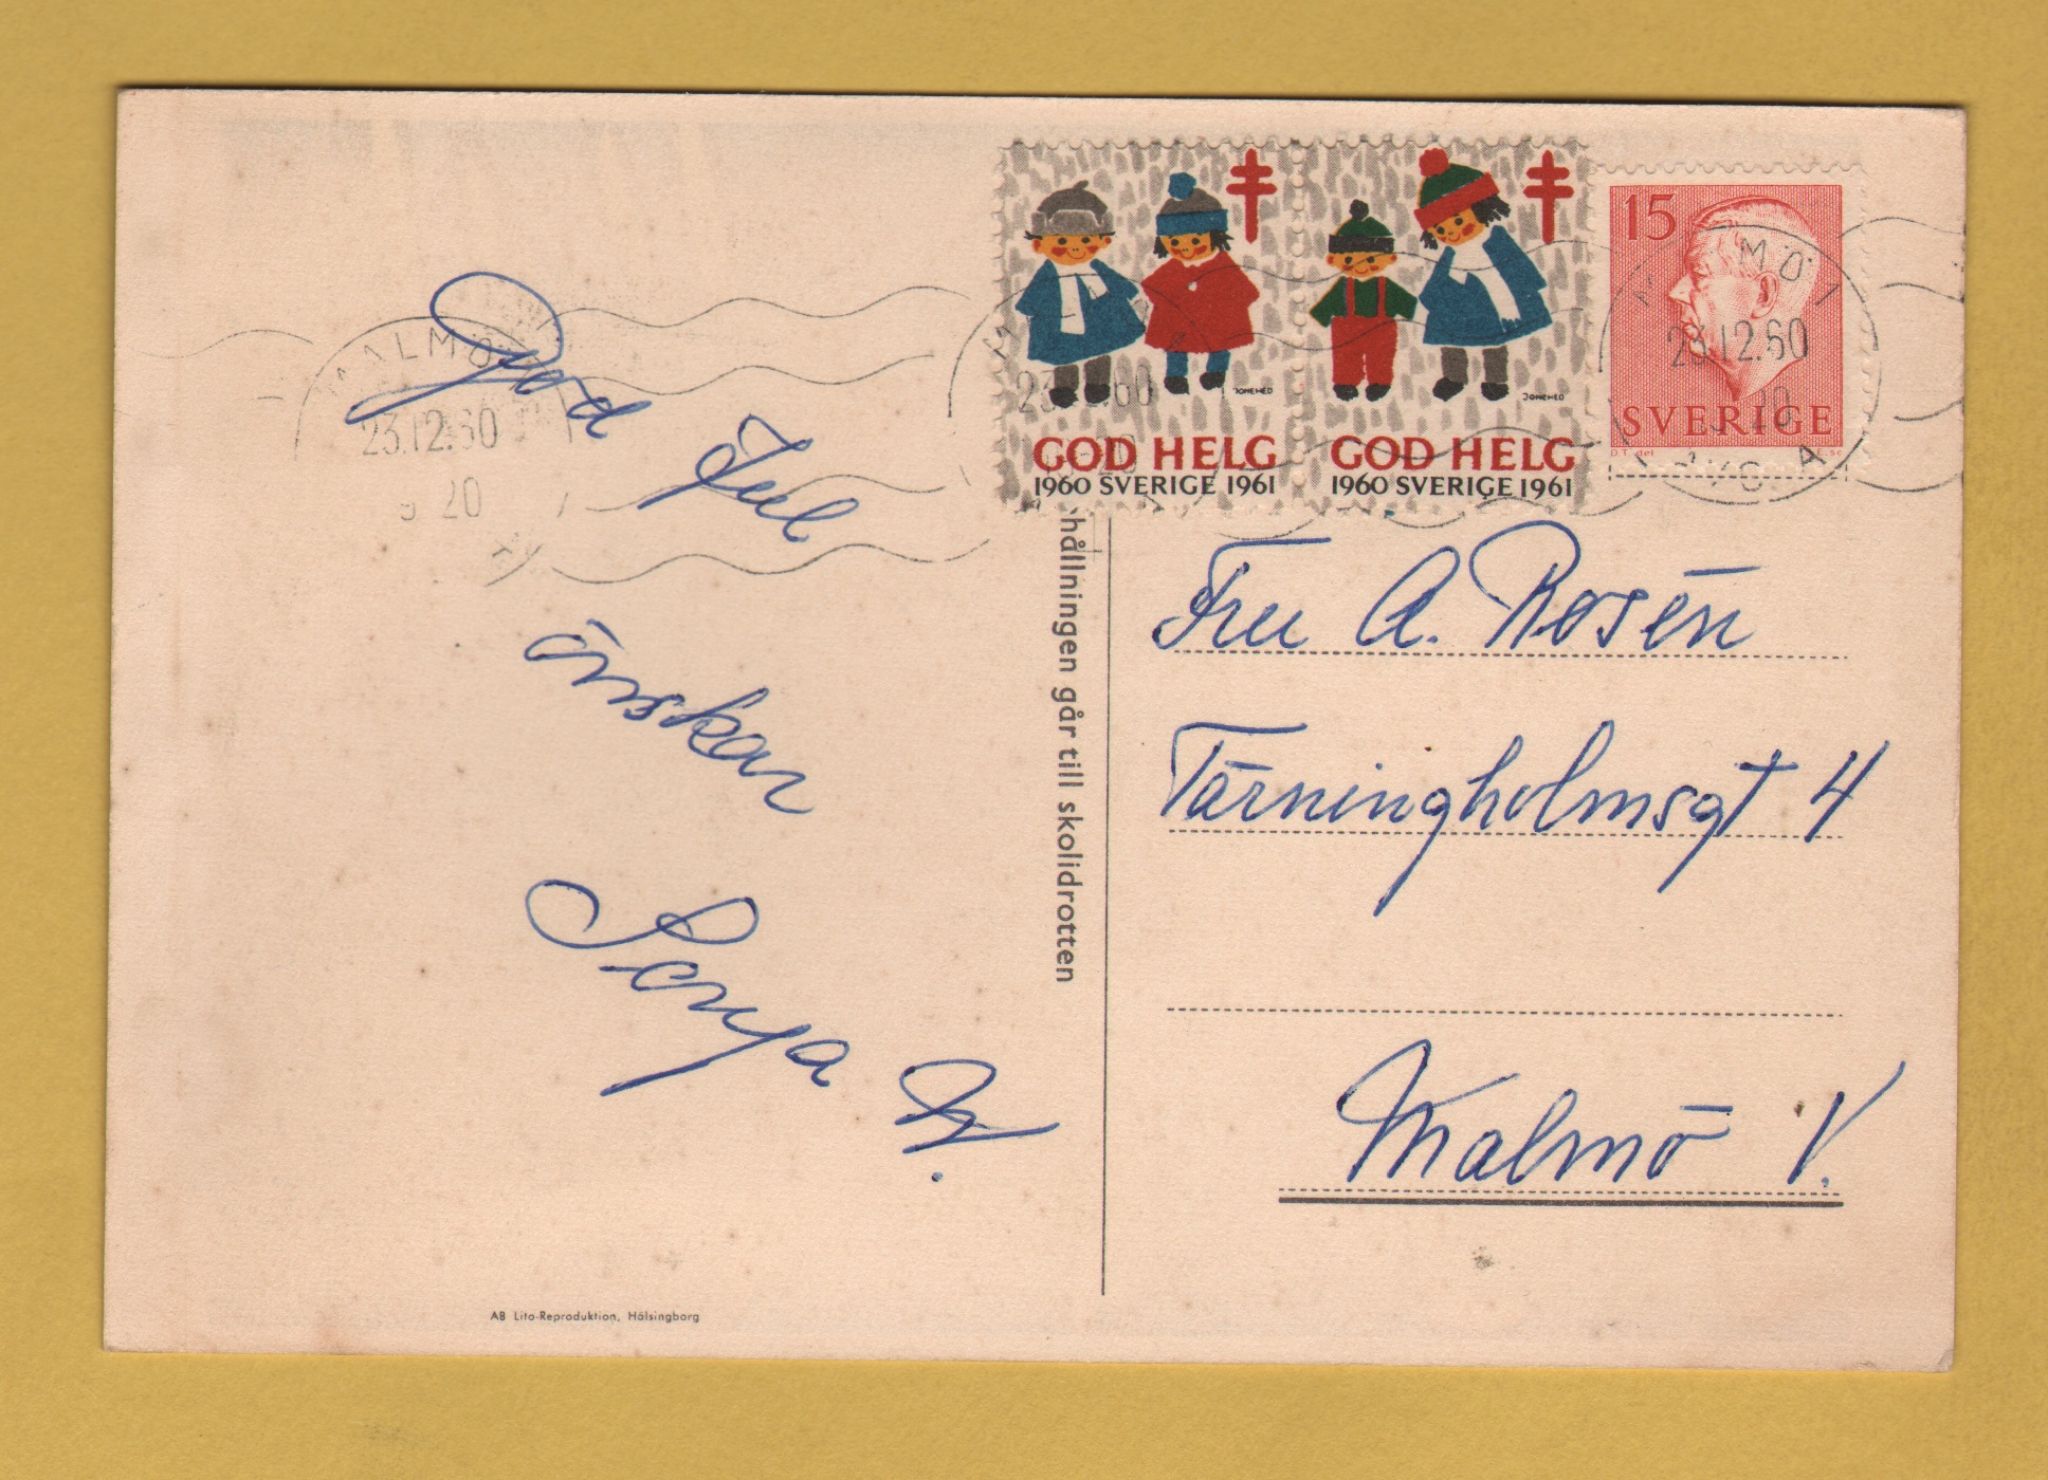 God
Jul
önskar
Sonya W.
MALMÖ
23.12.60
20
JONEMED
GOD HELG
1960 SVERIGE 1961
JONEMED
GOD HELG
1960 SVERIGE 1961
15
SVERIGE
D.T. del
MALMÖ 1
23.12.60
20
hållningen går till skolidrotten
Fru A. Rosén
Tärningholmsgt 4
Malmö V.
AB Lito-Reproduktion, Hälsingborg